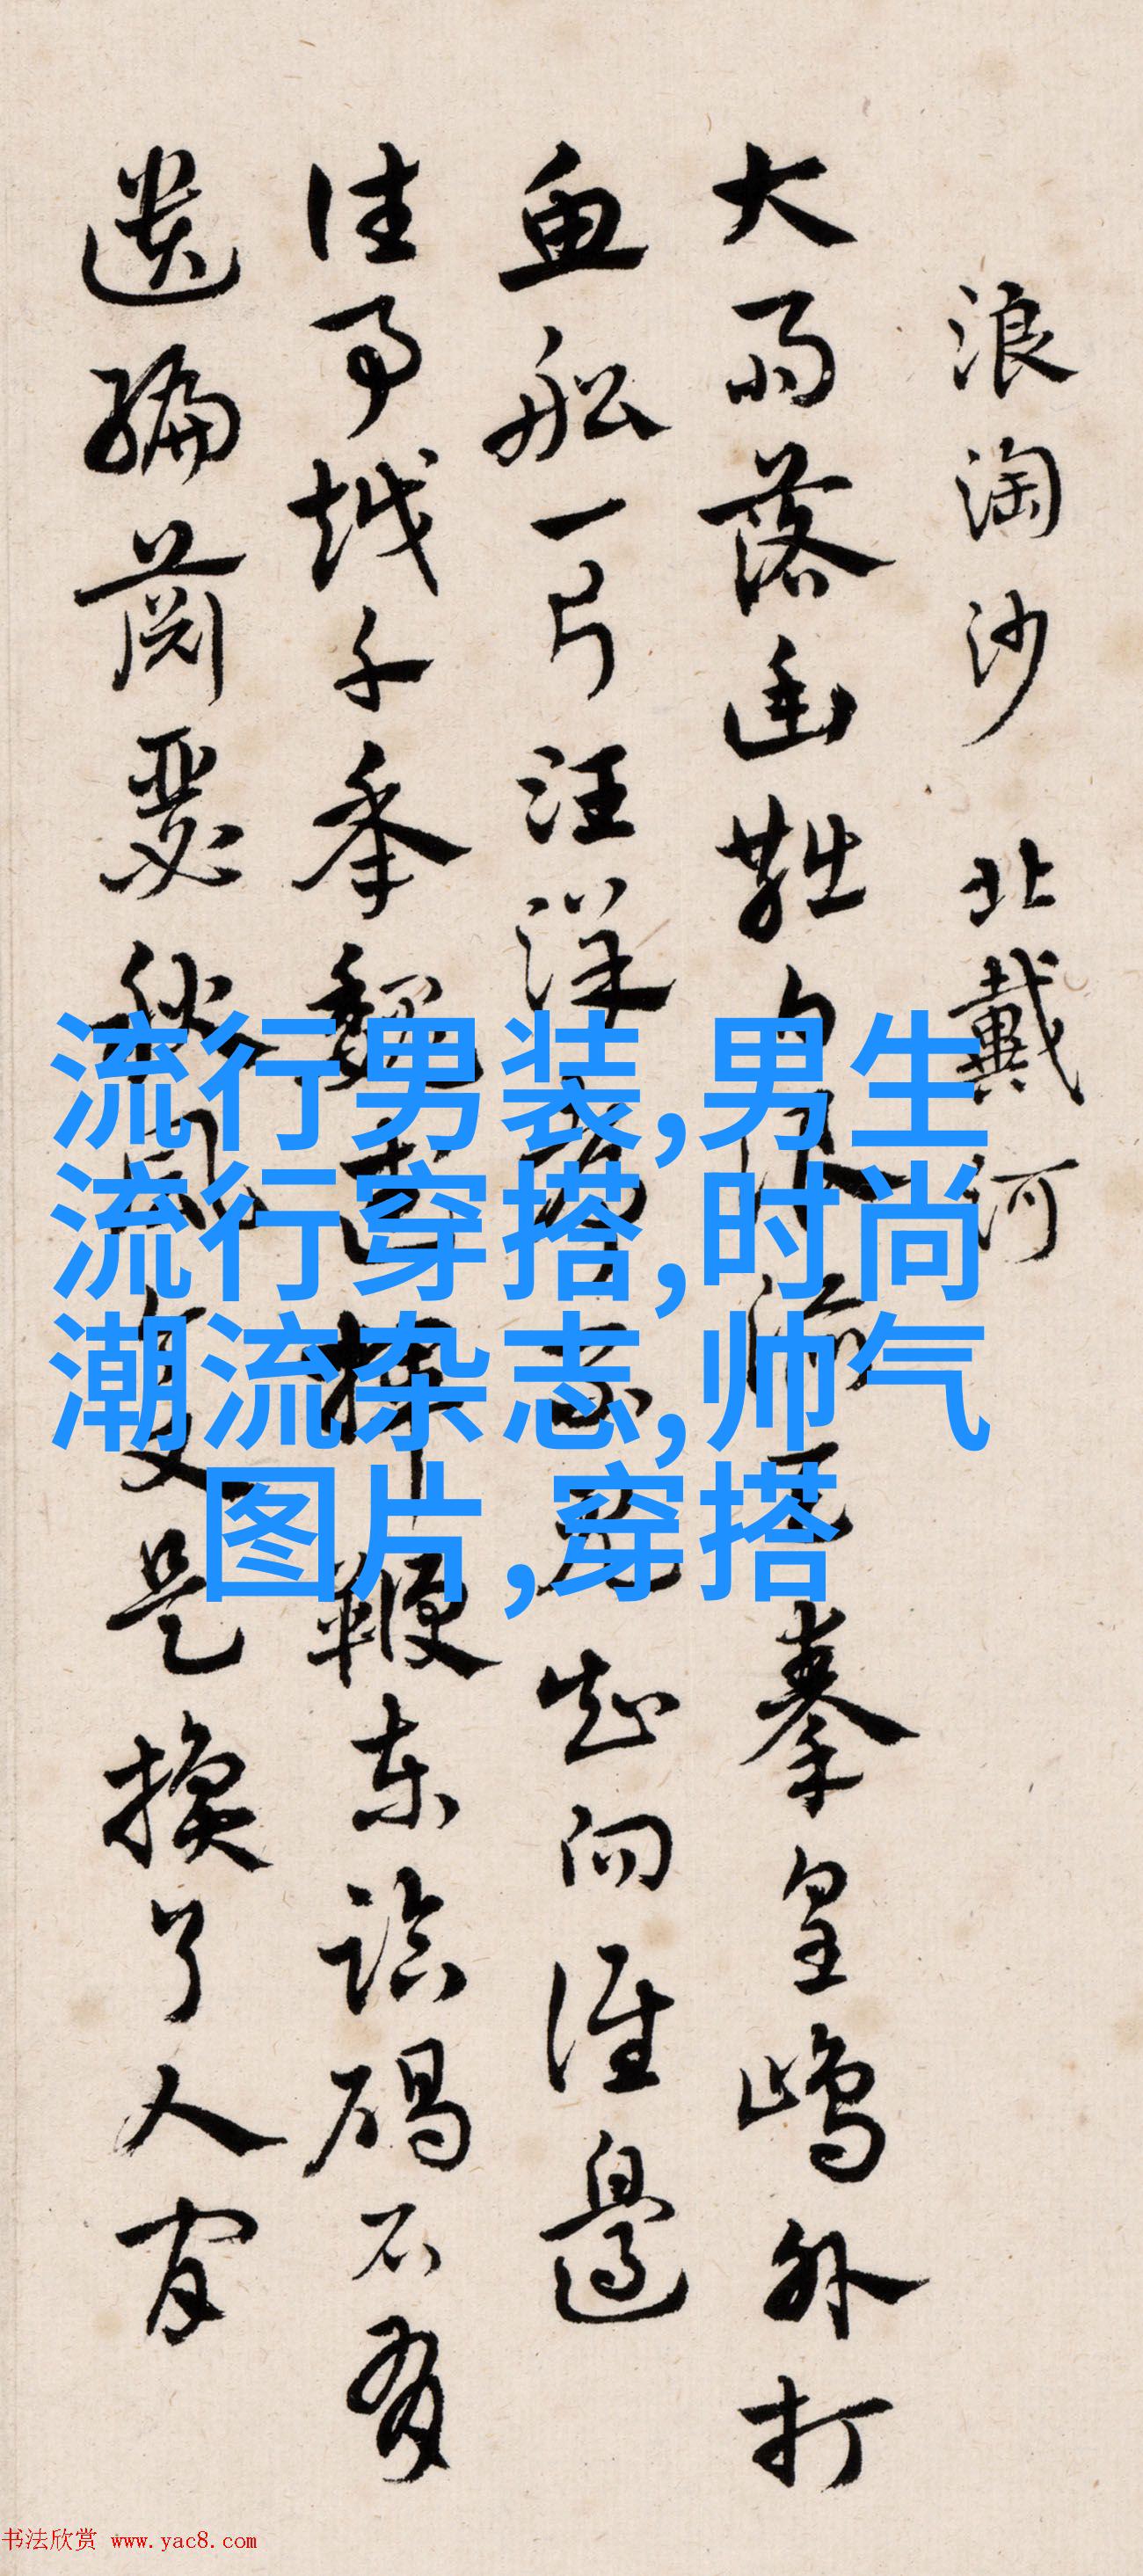 浪淘沙 北戴河
大雨落幽燕白浪滔天秦皇島外打
魚船一片汪洋都不見知向誰邊
往事越千年魏武揮鞭東臨碣石有
遺編蕭瑟秋風今又是換了人間
流行男装,男生
流行穿搭,时尚
潮流杂志,帅气
图片,穿搭
书法欣赏 www.yac8.com